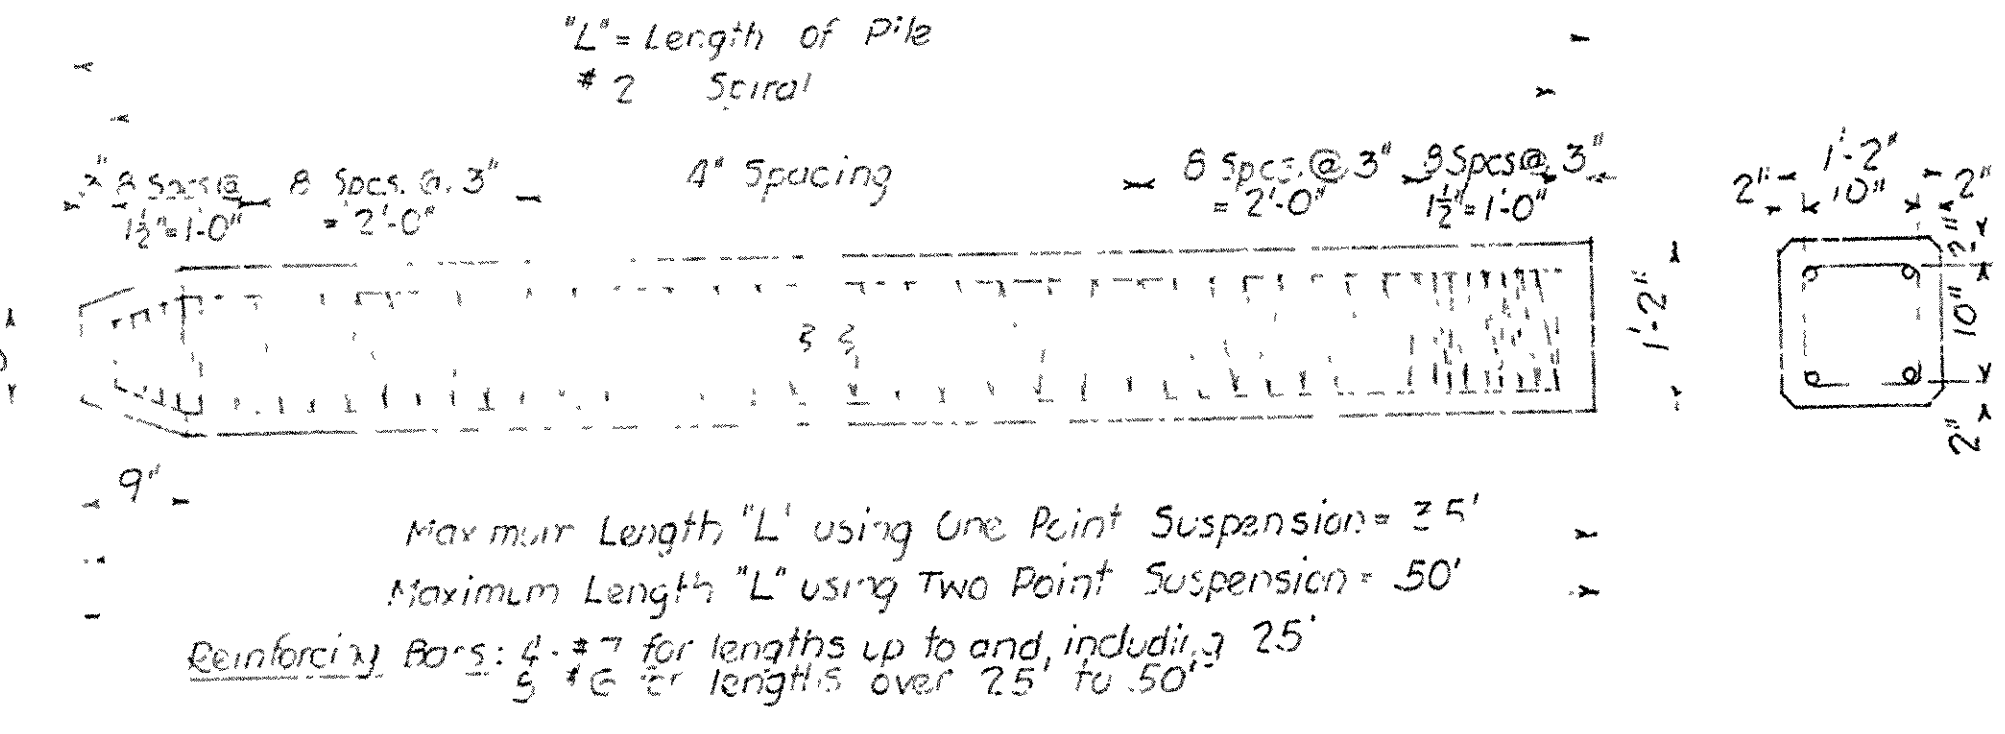 "L" = Length of Pile
# 2 Spiral
2" 8 Spcs @ 1½" = 1'-0"
8 Spcs. @ 3" = 2'-0"
4" Spacing
8 Spcs. @ 3" = 2'-0"
8 Spcs @ 1½" = 1'-0"
3"
1'-2"
9"
1'-2"
2" 10" 2"
2"
10"
2"
Maximum Length "L" using One Point Suspension = 35'
Maximum Length "L" using Two Point Suspension = 50'
Reinforcing Bars: 4 - #7 for lengths up to and, including 25'
lengths over 25' to 50'